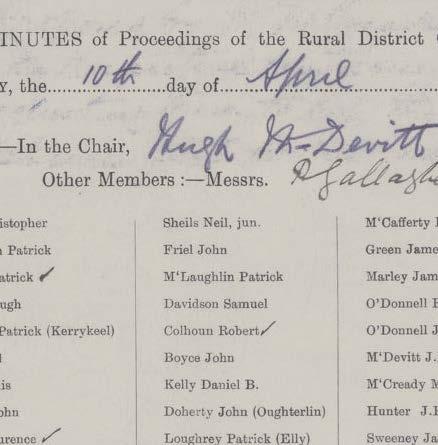 INUTES of Proceedings of the Rural District
Y, the 10th day of April
—In the Chair, Hugh McDevitt
Other Members :—Messrs. P Gallaghe
ristopher Sheils Neil, jun. M‘Cafferty
n Patrick Friel John Green Jame
atrick ✓ M‘Laughlin Patrick Marley Jam
ugh Davidson Samuel O’Donnell
Patrick (Kerrykeel) Colhoun Robert ✓ O’Donnell J
Boyce John M‘Devitt J.
is Kelly Daniel B. M‘Cready M
ohn Doherty John (Oughterlin) Hunter J.
urence ✓ Loughrey Patrick (Elly) Sweeney Ja